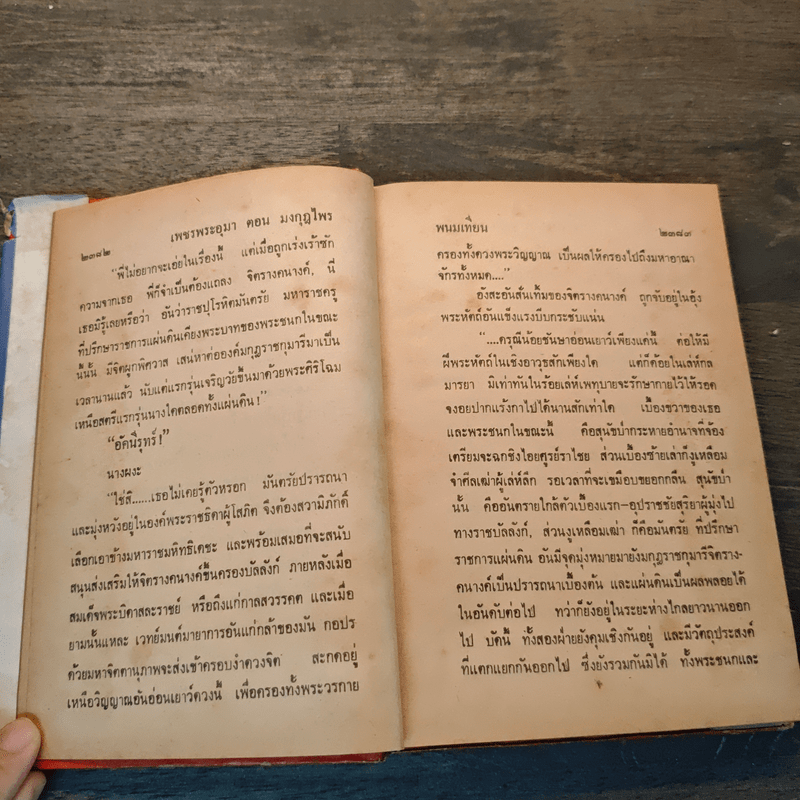 ๒๓๘๒ เพชรพระอุมา ตอน มงกุฎไพร
"พี่ไม่อยากจะเอ่ยในเรื่องนี้ แต่เมื่อถูกเร่งเร้าซัก
ความจากเธอ พี่ก็จำเป็นต้องแถลง จิตรางคนางค์, นี่
เธอมิรู้เลยหรือว่า อันว่าราชปุโรหิตมันตรัย มหาราชครู
ที่ปรึกษาราชการแผ่นดินเคียงพระบาทของพระชนกในขณะ
นี้นั้น มีจิตผูกพิศวาส เสน่หาต่อองค์มกุฎราชกุมารีมาเป็น
เวลานานแล้ว นับแต่แรกรุ่นเจริญวัยขึ้นมาด้วยพระศิริโฉม
เหนือสตรีแรกรุ่นนางใดตลอดทั้งแผ่นดิน!"
"อัคนีรุทร์!"
นางผงะ
"ใช่สิ......เธอไม่เคยรู้ตัวหรอก มันตรัยปรารถนา
และมุ่งหวังอยู่ในองค์พระราชธิดาผู้โสภิต จึงต้องสวามิภักดิ์
เลือกเอาข้างมหาราชมหิทธิเดชะ และพร้อมเสมอที่จะสนับ
สนุนส่งเสริมให้จิตรางคนางค์ขึ้นครองบัลลังก์ ภายหลังเมื่อ
สมเด็จพระบิดาสละราชย์ หรือถึงแก่กาลสวรรคต และเมื่อ
ยามนั้นแหละ เวทย์มนต์มายาการอันแก่กล้าของมัน กอปร
ด้วยมหาจิตตานุภาพจะส่งเข้าครอบงำดวงจิต สะกดอยู่
เหนือวิญญาณอันอ่อนเยาว์ดวงนี้ เพื่อครองทั้งพระวรกาย
พนมเทียน ๒๓๘๓
ครองทั้งดวงพระวิญญาณ เป็นผลให้ครองไปถึงมหาอาณา
จักรทั้งหมด...."
อังสะอันสั่นเทิ้มของจิตรางคนางค์ ถูกจับอยู่ในอุ้ง
พระหัตถ์อันแข็งแรงบีบกระชับแน่น
"....ดรุณีน้อยชันษาอ่อนเยาว์เพียงแค่นี้ ต่อให้มี
ฝีพระหัตถ์ในเชิงอาวุธสักเพียงใด แต่ก็ด้อยในเล่ห์กล
มารยา มิเท่าทันในร้อยเล่ห์เพทุบายจะรักษากายไว้ให้รอด
จงอยปากแร้งกาไปได้นานสักเท่าใด เบื้องขวาของเธอ
และพระชนกในขณะนี้ คือสุนัขบ้ากระหายอำนาจที่จ้อง
เตรียมจะฉกชิงไอยศูรย์ราไชย ส่วนเบื้องซ้ายเล่าก็งูเหลือม
จำศีลเฒ่าผู้เล่ห์ลึก รอเวลาที่จะเขมือบขยอกกลืน สุนัขบ้า
นั้น คืออันตรายใกล้ตัวเบื้องแรก–อุปราชชัยสุริยาผู้มุ่งไป
ทางราชบัลลังก์, ส่วนงูเหลือมเฒ่า ก็คือมันตรัย ที่ปรึกษา
ราชการแผ่นดิน อันมีจุดมุ่งหมายมายังมกุฎราชกุมารีจิตราง-
คนางค์เป็นปรารถนาเบื้องต้น และแผ่นดินเป็นผลพลอยได้
ในอันดับต่อไป ทว่าก็ยังอยู่ในระยะห่างไกลยาวนานออก
ไป บัดนี้ ทั้งสองฝ่ายยังคุมเชิงกันอยู่ และมีวัตถุประสงค์
ที่แตกแยกกันออกไป ซึ่งยังรวมกันมิได้ ทั้งพระชนกและ